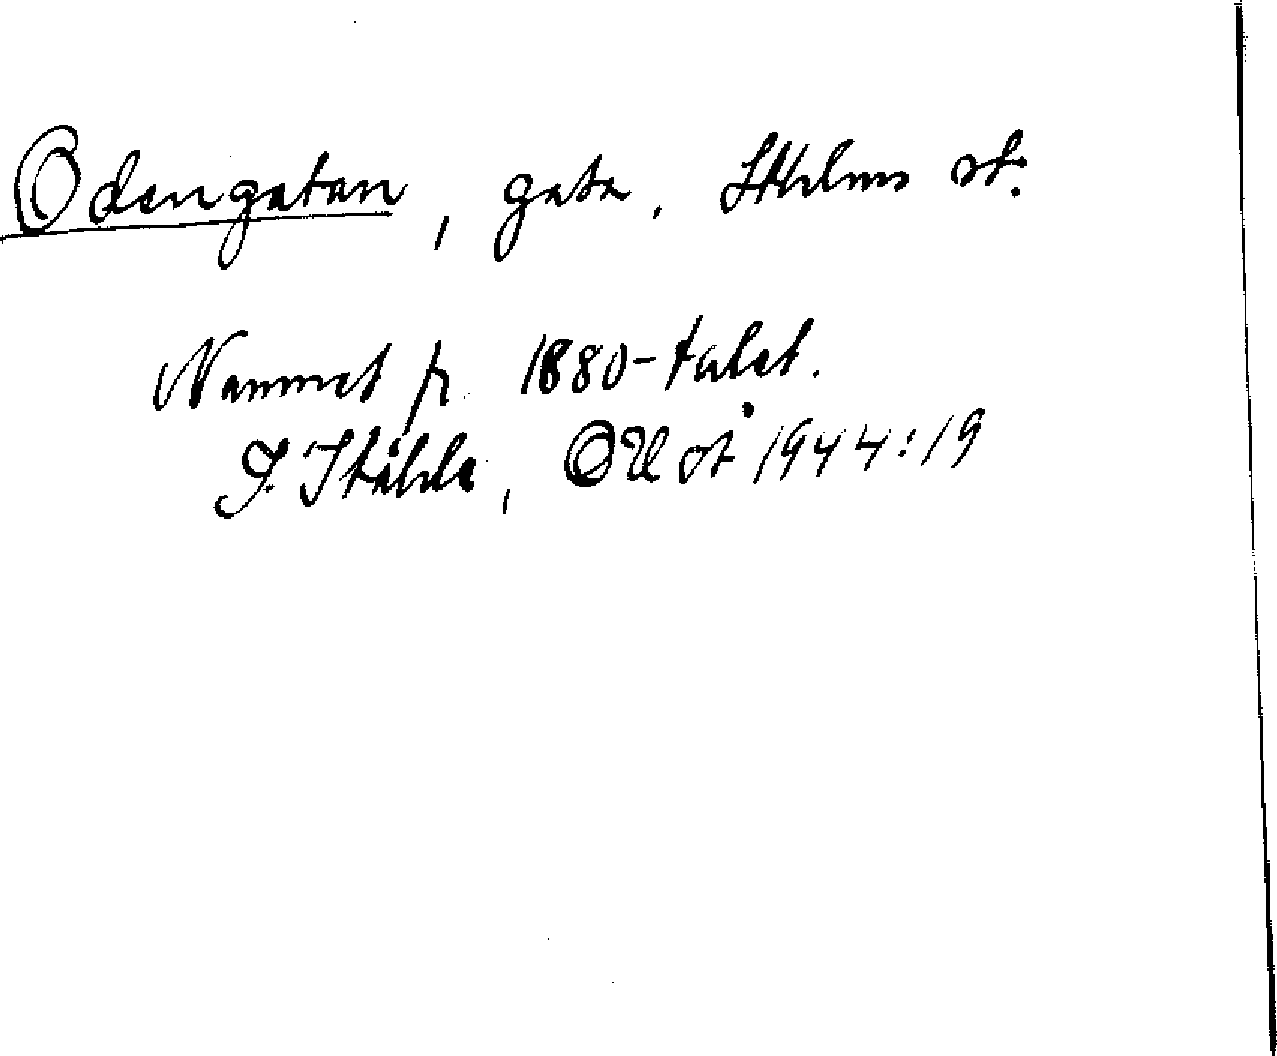 Odengatan, gata, Sthlms st.
Namnet fr. 1880-talet.
I. Ståhle, OU st 1944:19